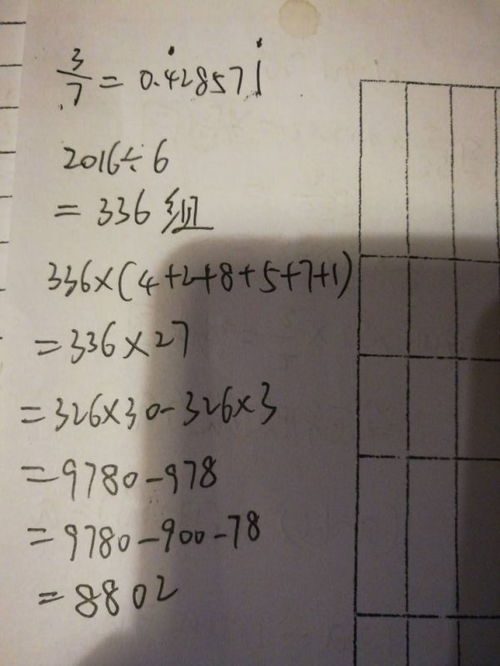 3/7 = 0.4̇28571̇
2016÷6
= 336 组
336×(4+2+8+5+7+1)
= 336×27
= 326×30-326×3
= 9780-978
= 9780-900-78
= 8802